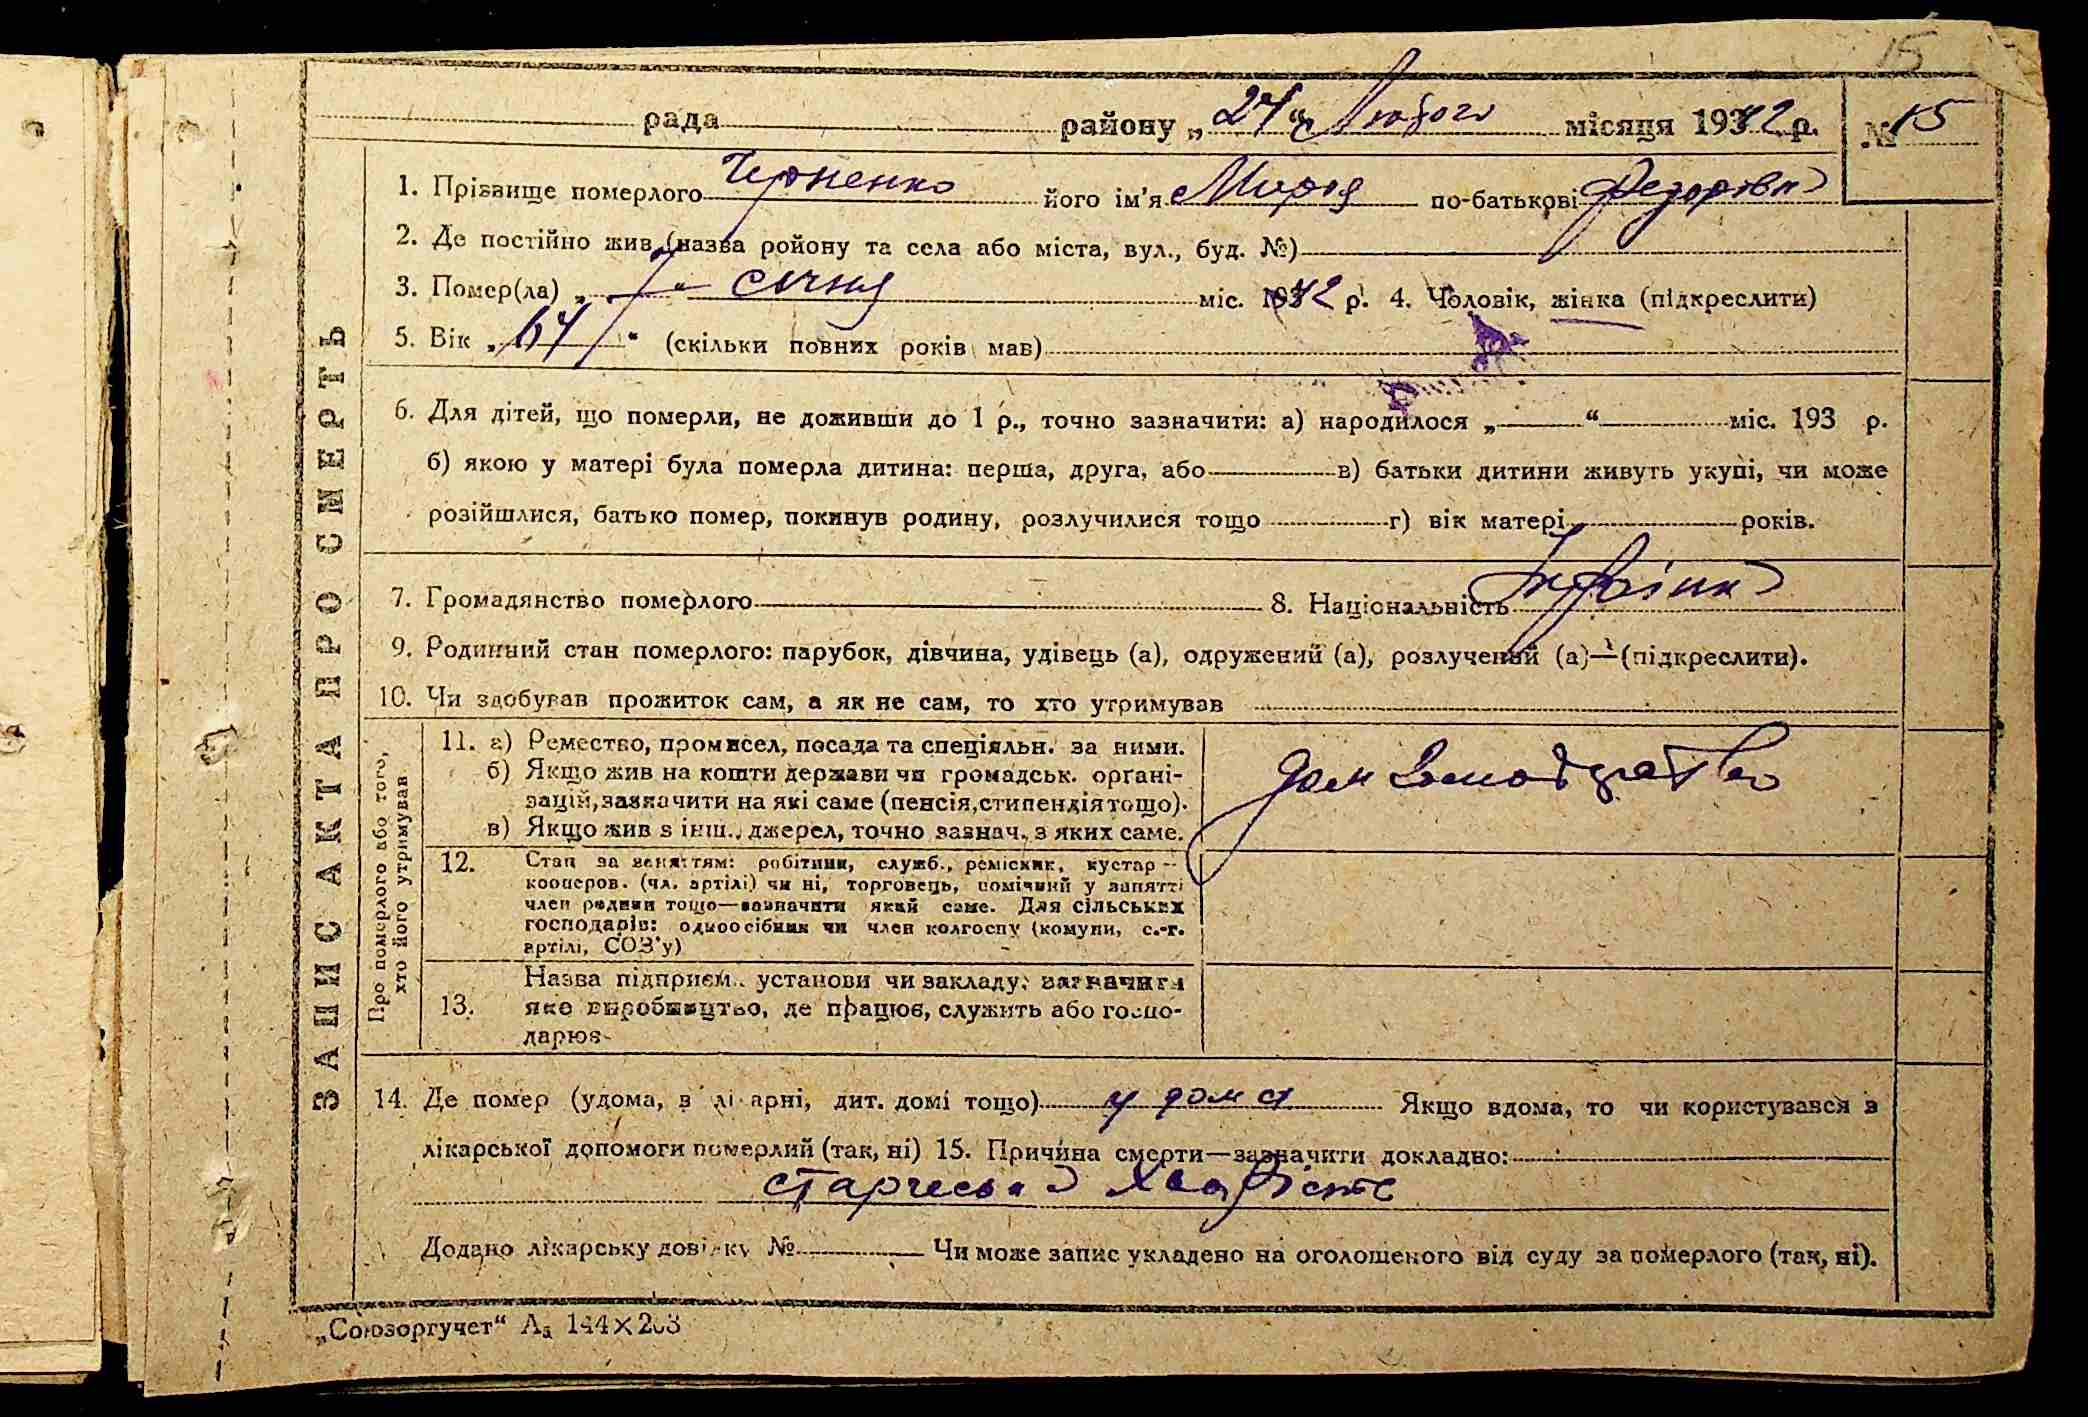 15
рада района „24“ Лютого місяця 1942 р. № 15
ЗАПИС АКТА ПРО СМЕРТЬ
1. Прізвище померлого Черненко його ім'я Мирія по-батькові Федорівна
2. Де постійно жив (назва ройону та села або міста, вул., буд. №)
3. Помер(ла) „ “ січня міс. 1942 р. 4. Чоловік, жінка (підкреслити)
5. Вік „64“ (скільки повних років мав)
6. Для дітей, що померли, не доживши до 1 р., точно зазначити: а) народилося „ “ міс. 193 р.
б) якою у матері була померла дитина: перша, друга, або в) батьки дитини живуть укупі, чи може
розійшлися, батько помер, покинув родину, розлучилися тощо г) вік матері років.
7. Громадянство померлого 8. Національність Українка
9. Родинний стан померлого: парубок, дівчина, удівець (а), одружений (а), розлучений (а)—(підкреслити).
10. Чи здобував прожиток сам, а як не сам, то хто утримував
Про померлого або того,
хто його утримував
11. а) Ремество, промисел, посада та спеціяльн. за ними.
б) Якщо жив на кошти держави чи громадськ. органі-
зацій, зазначити на які саме (пенсія, стипендія тощо).
в) Якщо жив з інш., джерел, точно зазнач., з яких саме.
12. Стан за заняттям: робітник, служб., реміскик, кустар —
кооперов. (чл. артілі) чи ні, торговець, помічний у занятті
член родини тощо—зазначити який саме. Для сільських
господарів: одноосібник чи член колгоспу (комуни, с.-г.
артілі, СОЗ'у)
13. Назва підприєм. установи чи закладу; зазначити
яке виробництво, де працює, служить або госпо-
дарює
14. Де помер (удома, в лікарні, дит. домі тощо) у дома Якщо вдома, то чи користувався з
лікарської допомоги померлий (так, ні) 15. Причина смерти—зазначити докладно:
старческа
Додано лікарську довідку № Чи може запис укладено на оголошеного від суду за померлого (так, ні).
„Союзоргучет“